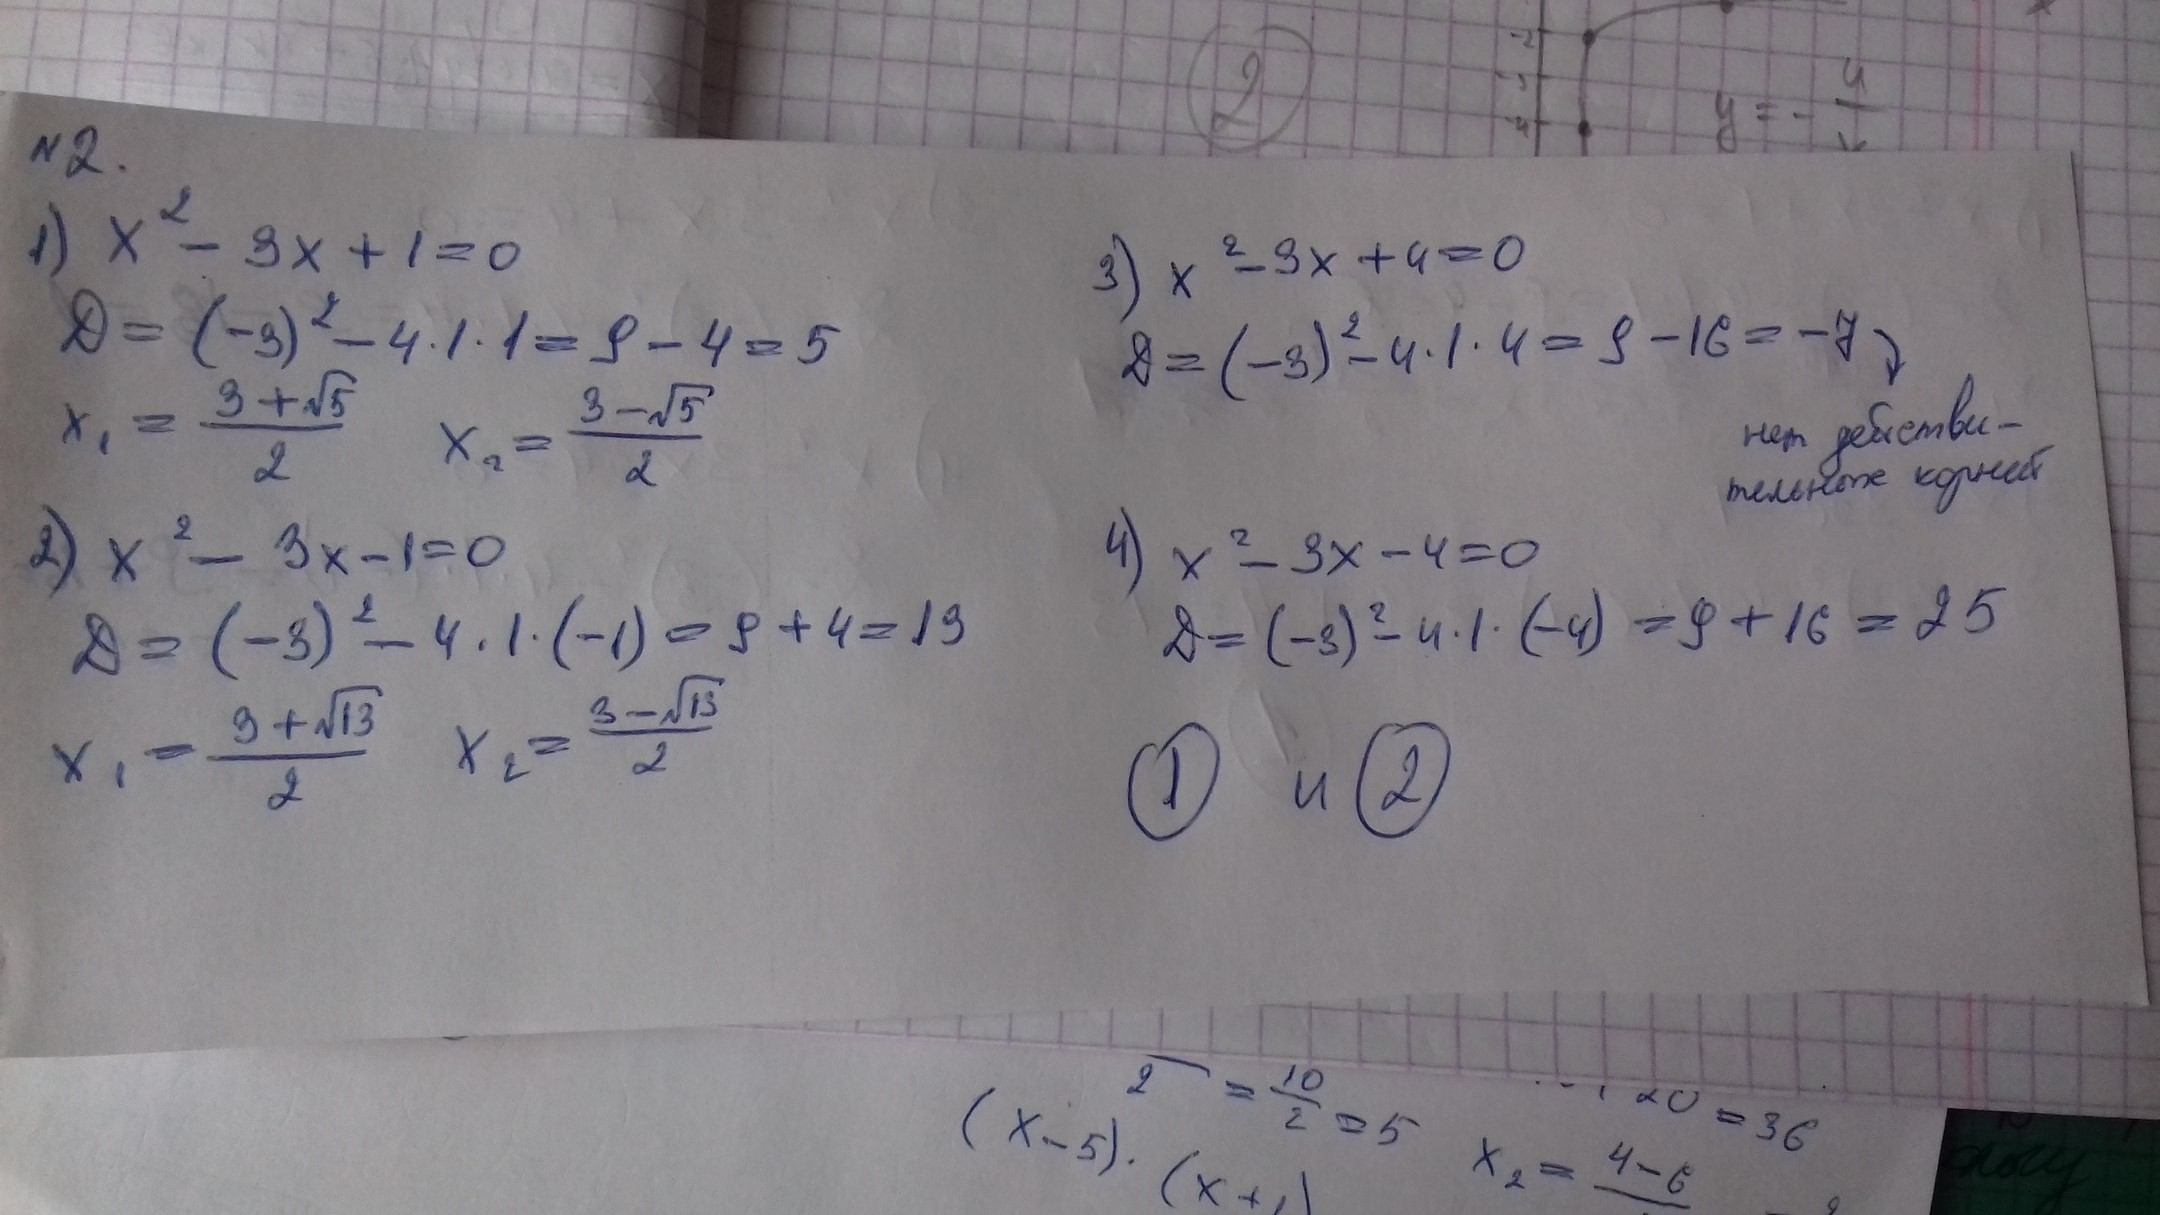 2
-2
-3
-4
y = -
№2.
1) x² - 3x + 1 = 0
D = (-3)² - 4·1·1 = 9 - 4 = 5
x₁ = (3+√5)/2 x₂ = (3-√5)/2
2) x² - 3x - 1 = 0
D = (-3)² - 4·1·(-1) = 9 + 4 = 13
x₁ = (3+√13)/2 x₂ = (3-√13)/2
3) x² - 3x + 4 = 0
D = (-3)² - 4·1·4 = 9 - 16 = -7
нет действи-
тельных корней
4) x² - 3x - 4 = 0
D = (-3)² - 4·1·(-4) = 9 + 16 = 25
1 и 2
2 = 10/2 = 5
20 = 36
(x-5)·(x+1)
x₂ = 4-6